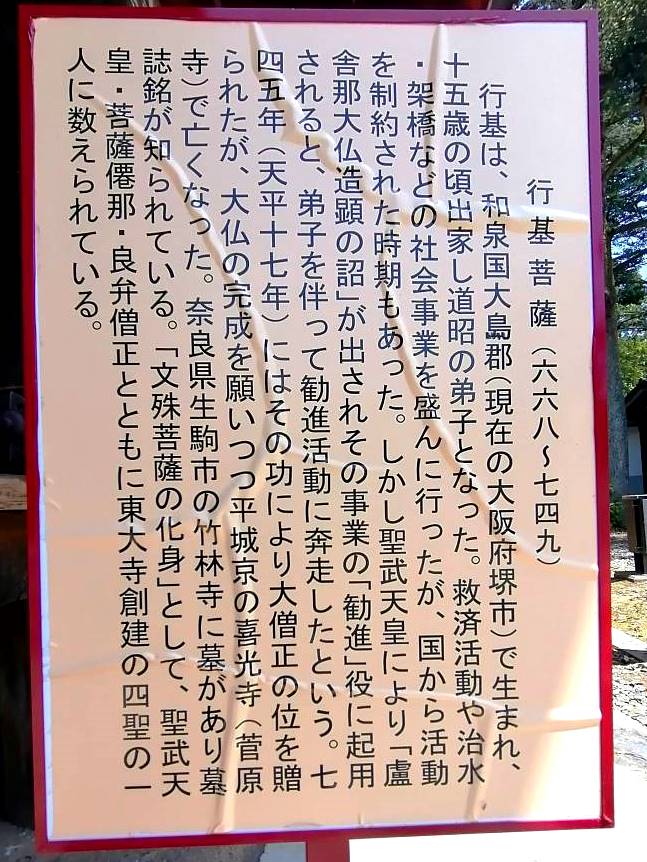 行基菩薩（六六八～七四九）
行基は、和泉国大鳥郡（現在の大阪府堺市）で生まれ、
十五歳の頃出家し道昭の弟子となった。救済活動や治水
・架橋などの社会事業を盛んに行ったが、国から活動
を制約された時期もあった。しかし聖武天皇により「盧
舎那大仏造顕の詔」が出されその事業の「勧進」役に起用
されると、弟子を伴って勧進活動に奔走したという。七
四五年（天平十七年）にはその功により大僧正の位を贈
られたが、大仏の完成を願いつつ平城京の喜光寺（菅原
寺）で亡くなった。奈良県生駒市の竹林寺に墓があり墓
誌銘が知られている。「文殊菩薩の化身」として、聖武天
皇・菩薩僊那・良弁僧正とともに東大寺創建の四聖の一
人に数えられている。